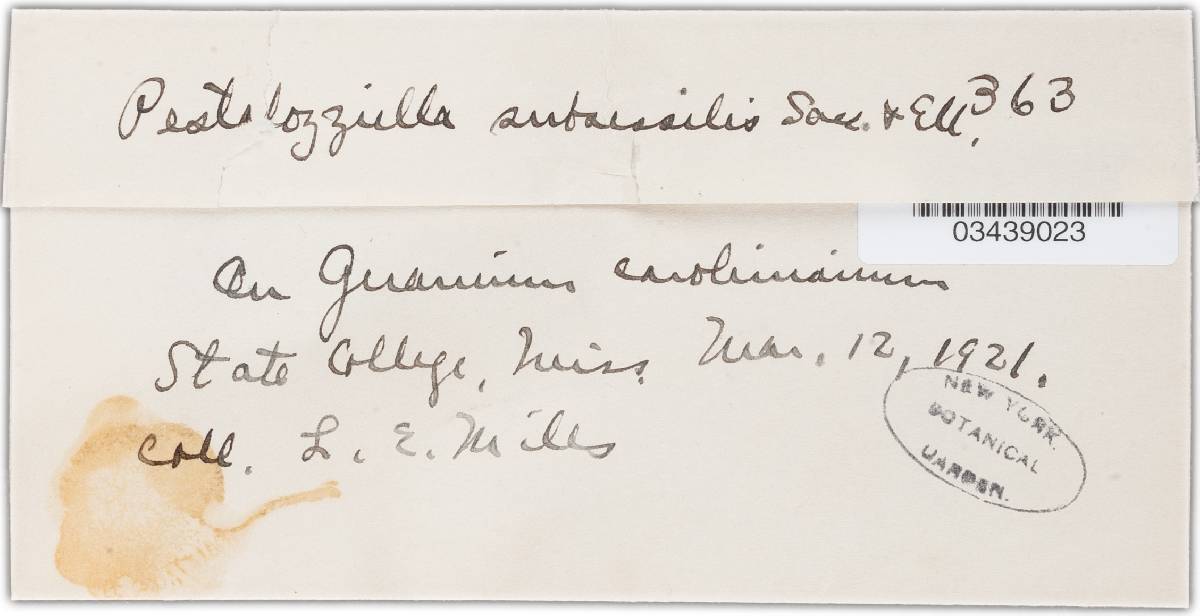 Pestalozziella subsessilis Sacc. & Ell. 363
03439023
On Geranium carolinianum
State College, Miss. Mar. 12, 1921.
coll. L. E. Mills
NEW YORK
BOTANICAL
GARDEN.